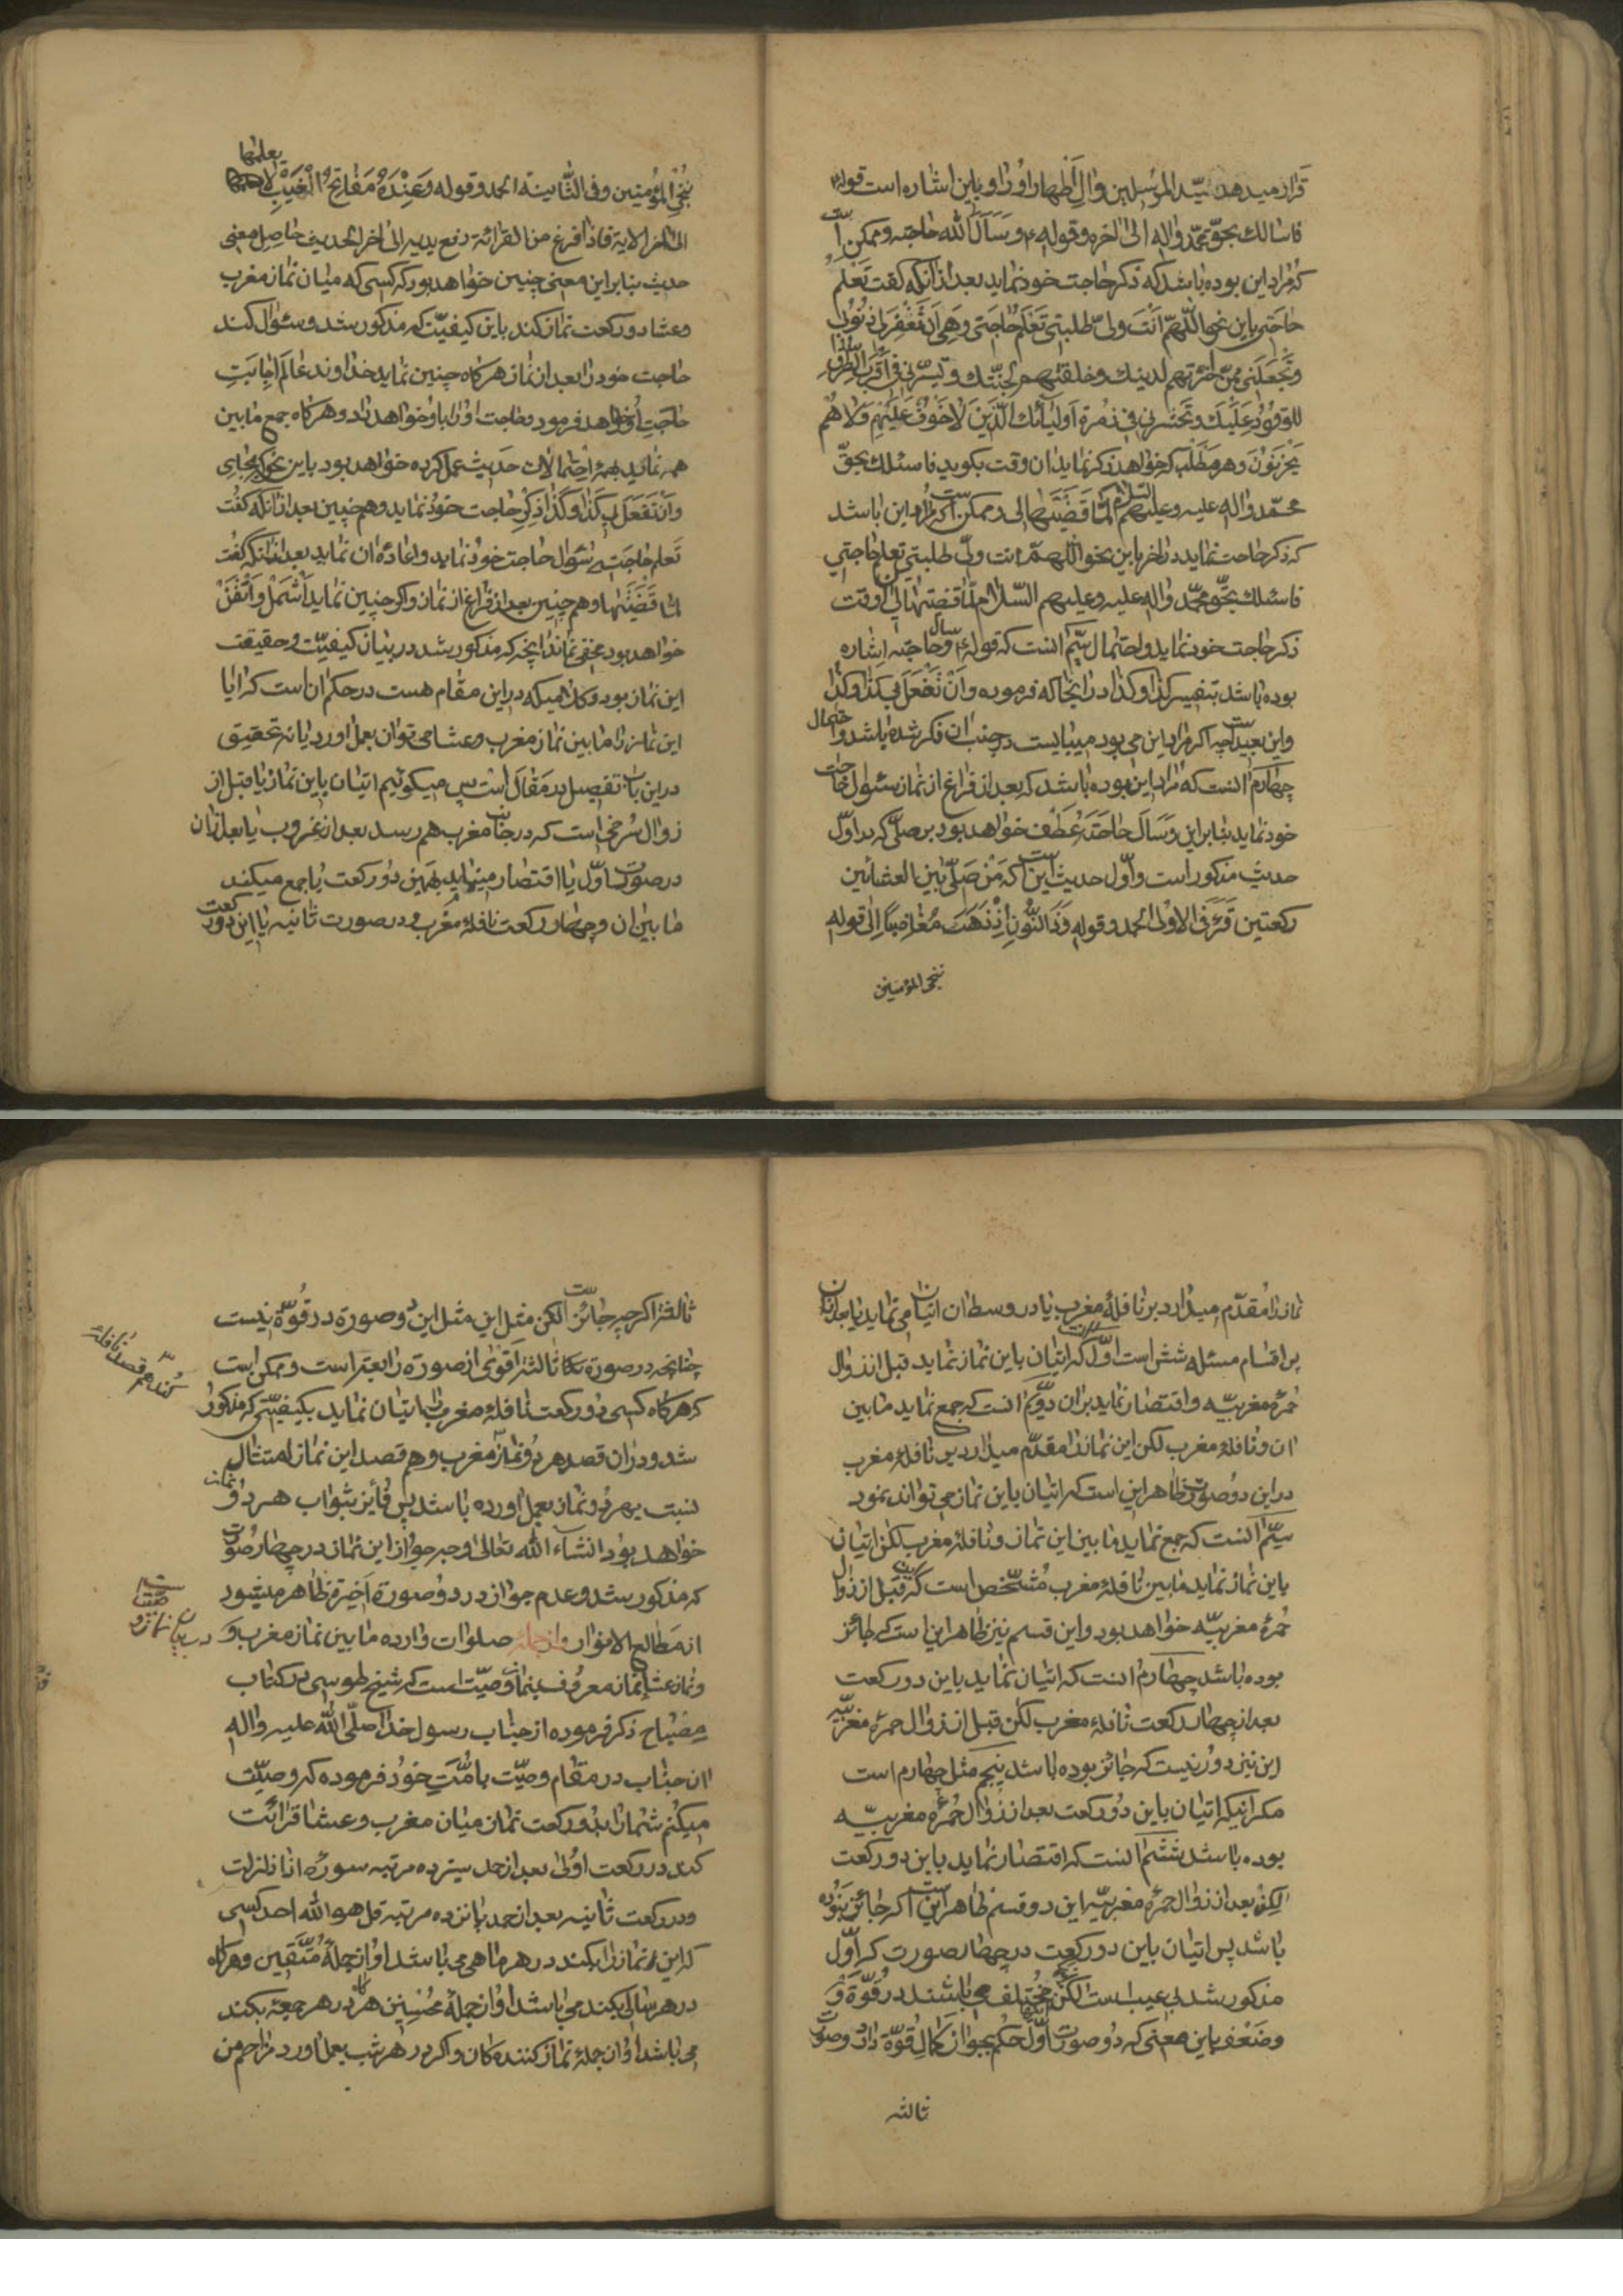 قرار میدهد سیّد المرسلین وال اطهار او را و باین اشاره است قوله
فاسالك بحقّ محمّد واله الی اخره وقوله ع وسَاَلَ الله حاجته وممکن است
که مراد این بوده باشد که ذکر حاجت خود نماید بعد از آنکه کفت تعلم
حاجتی باین نحو اللّهمّ انت ولیّ طلبتی تعلم حاجتی وهی ان تغفر لی ذنوبی
وتجعلنی ممّن اخترتهم لدینك وخلقتهم لجنّتك وتیسّر لی فی اقرب الطرق
للوفود علیك وتحشرنی فی زمرة اولیائك الّذین لا خوف علیهم ولا هم
یحزنون وهر مطلب که خواهد ذکر نماید ان وقت بکوید فاسئلك بحقّ
محمّد واله علیه وعلیهم السلام لمّا قضیتها لی وممکن است که مراد این باشد
که ذکر حاجت نماید در اخر باین نحو اللّهمّ انت ولیّ طلبتی تعلم حاجتی
فاسئلك بحقّ محمّد واله علیه وعلیهم السّلام لمّا قضیتها لی ان وقت
ذکر حاجت خود نماید واحتمال سیّم انست که قوله ع وسال حاجته اشاره
بوده باشد بتفسیر کذا وکذا در انجا که فرموده وان تفعل بی کذا وکذا
واین بعید است چه اکر مراد این می بود میبایست در جنب ان ذکر شده باشد واحتمال
چهارم انست که مراد این بوده باشد که بعد از فراغ از نماز سئوال حاجت
خود نماید بنابر این وسَاَلَ حاجته عطف خواهد بود بر صلّی که در اوّل
حدیث مذکور است واوّل حدیث این است که من صلّی بین العشائین
رکعتین قرء فی الاولی الحمد وقوله وذا النّون اذ ذهب مغاضبا الی قوله
ننجی المؤمنین
ننجی المؤمنین وفی الثّانیة الحمد وقوله وعنده مفاتح الغیب لا یعلمها
الی اخر الایة فاذا فرغ من القرائة رفع یدیه الی اخر الحدیث حاصل معنی
حدیث بنابر این معنی چنین خواهد بود که کسی که میان نماز مغرب
وعشا دو رکعت نماز کند باین کیفیّت که مذکور شد وسئوال کند
حاجت خود را بعد از نماز هر کاه چنین نماید خداوند عالم اجابت
حاجت او خواهد فرمود وحاجت او را باو خواهد داد وهر کاه جمع ما بین
همه نماید بهمهٔ احتمالات حدیث عمل کرده خواهد بود باین نحو که بجای
وان تفعل بی کذا وکذا ذکر حاجت خود نماید وهم چنین بعد از انکه کفت
تعلم حاجتی سئوال حاجت خود نماید واعادهٔ ان نماید بعد از انکه کفت
لمّا قضیتها وهم چنین بعد از فراغ از نماز واکر چنین نماید اشمل واتقن
خواهد بود مخفی نماند انچه که مذکور شد در بیان کیفیّت وحقیقت
این نماز بود وکلامیکه در این مقام هست در حکم ان است که ایا
این نماز را ما بین نماز مغرب وعشا می توان بعمل اورد یا نه تحقیق
در این باب تفصیل در مقال است پس میکوئیم اتیان باین نماز یا قبل از
زوال سرخی است که در جانب مغرب هم رسد بعد از غروب یا بعد از ان
در صورت اوّل یا اقتصار مینماید بهمین دو رکعت یا جمع میکند
ما بین ان وچهار رکعت نافلهٔ مغرب ودر صورت ثانیه یا این دو رکعت
نماز را مقدّم میدارد بر نافلهٔ مغرب یا در وسط ان اتیان می نماید یا بعد از ان
پس اقسام مسئله شش است اوّل انست که اتیان باین نماز نماید قبل از زوال
حمرهٔ مغربیّه واقتصار نماید بر ان دویّم انست که جمع نماید ما بین
ان ونافلهٔ مغرب لکن این نماز را مقدّم میدارد بر نافلهٔ مغرب
در این دو صورت ظاهر این است که اتیان باین نماز می تواند نمود
سیّم انست که جمع نماید ما بین این نماز ونافلهٔ مغرب لکن اتیان
باین نماز نماید ما بین نافلهٔ مغرب مشخّص است که این قبل از زوال
حمرهٔ مغربیّه خواهد بود واین قسم نیز ظاهر این است که جائز
بوده باشد چهارم انست که اتیان نماید باین دو رکعت
بعد از چهار رکعت نافلهٔ مغرب لکن قبل از زوال حمرهٔ مغربیّه
این نیز دور نیست که جائز بوده باشد پنجم مثل چهارم است
مکر انیکه اتیان باین دو رکعت بعد از زوال حمرهٔ مغربیّه
بوده باشد ششم انست که اقتصار نماید باین دو رکعت
لکن بعد از زوال حمرهٔ مغربیّه این دو قسم ظاهر این است که جائز نبوده
باشد پس اتیان باین دو رکعت در چهار صورت که اوّل
مذکور شد بی عیب است لکن مختلف می باشند در قوّة و
وضعف باین معنی که دو صورت اوّل حکم بجواز کمال قوّة دارد وصورت
ثالثه
ثالثه اکر چه جائز است لکن مثل این مثل این دو صورة در قوّة نیست
چنانچه در صورة ثالثه اقوی از صورة رابعه است وممکن است
که هر کاه کسی دو رکعت نافلهٔ مغرب را اتیان نماید بکیفیّتی که مذکور
شد ودر ان قصد هر دو نماز مغرب وهم قصد این نماز امتثال
نسبت بهر دو نماز بعمل اورده باشد پس فائز بثواب هر دو نماز
خواهد بود انشاء الله تعالی وجه جواز این نماز در چهار صورت
که مذکور شد وعدم جواز در دو صورة اخیرة ظاهر میشود
از مطالع الانوار واز جملهٔ صلوات وارده ما بین نماز مغرب و
ونماز عشا نماز معروف بنماز وصیّت است که شیخ طوسی در کتاب
مصباح ذکر فرموده از جناب رسول خدا صلّی الله علیه واله
ان جناب در مقام وصیّت بامّت خود فرموده که وصیّت
میکنم شما را بدو رکعت نماز میان مغرب وعشا قرائت
کند در رکعت اولی بعد از حمد سیزده مرتبه سوره اذا زلزلت
ودر رکعت ثانیه بعد از حمد پانزده مرتبه قل هو الله احد کسی
که این نماز را بکند در هر ماهی می باشد او از جملهٔ متّقین وهر کاه
در هر سالی بکند می باشد او از جملهٔ محسنین هر کاه در هر جمعه بکند
می باشد او از جملهٔ نماز کننده کان واکر در هر شب بعمل اورد مزاحم من
کند هم قصد نافلهٔ
در بیان نماز وصیّت